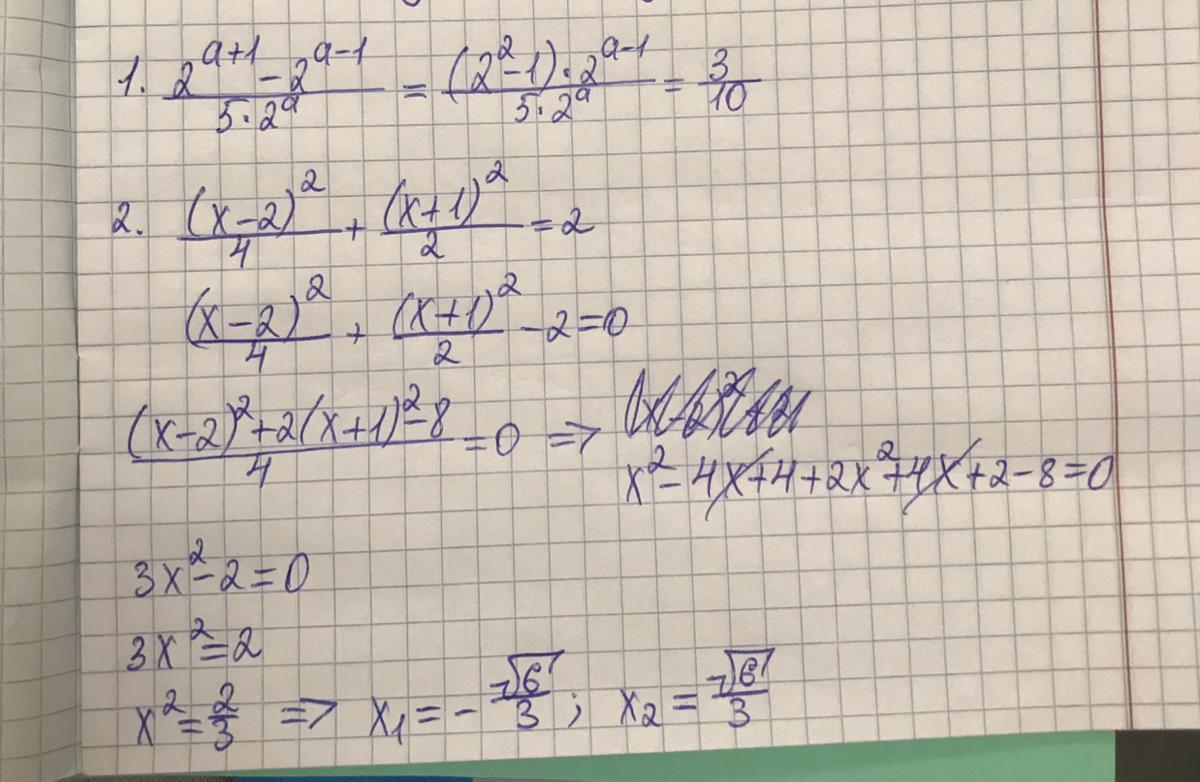 1. (2^(a+1) - 2^(a-1))/(5·2^a) = ((2^2-1)·2^(a-1))/(5·2^a) = 3/10
2. (x-2)^2/4 + (x+1)^2/2 = 2
(x-2)^2/4 + (x+1)^2/2 - 2 = 0
((x-2)^2+2(x+1)^2-8)/4 = 0 =>
x^2-4x+4+2x^2+4x+2-8=0
3x^2-2=0
3x^2=2
x^2=2/3 => x1=-√6/3; x2=√6/3